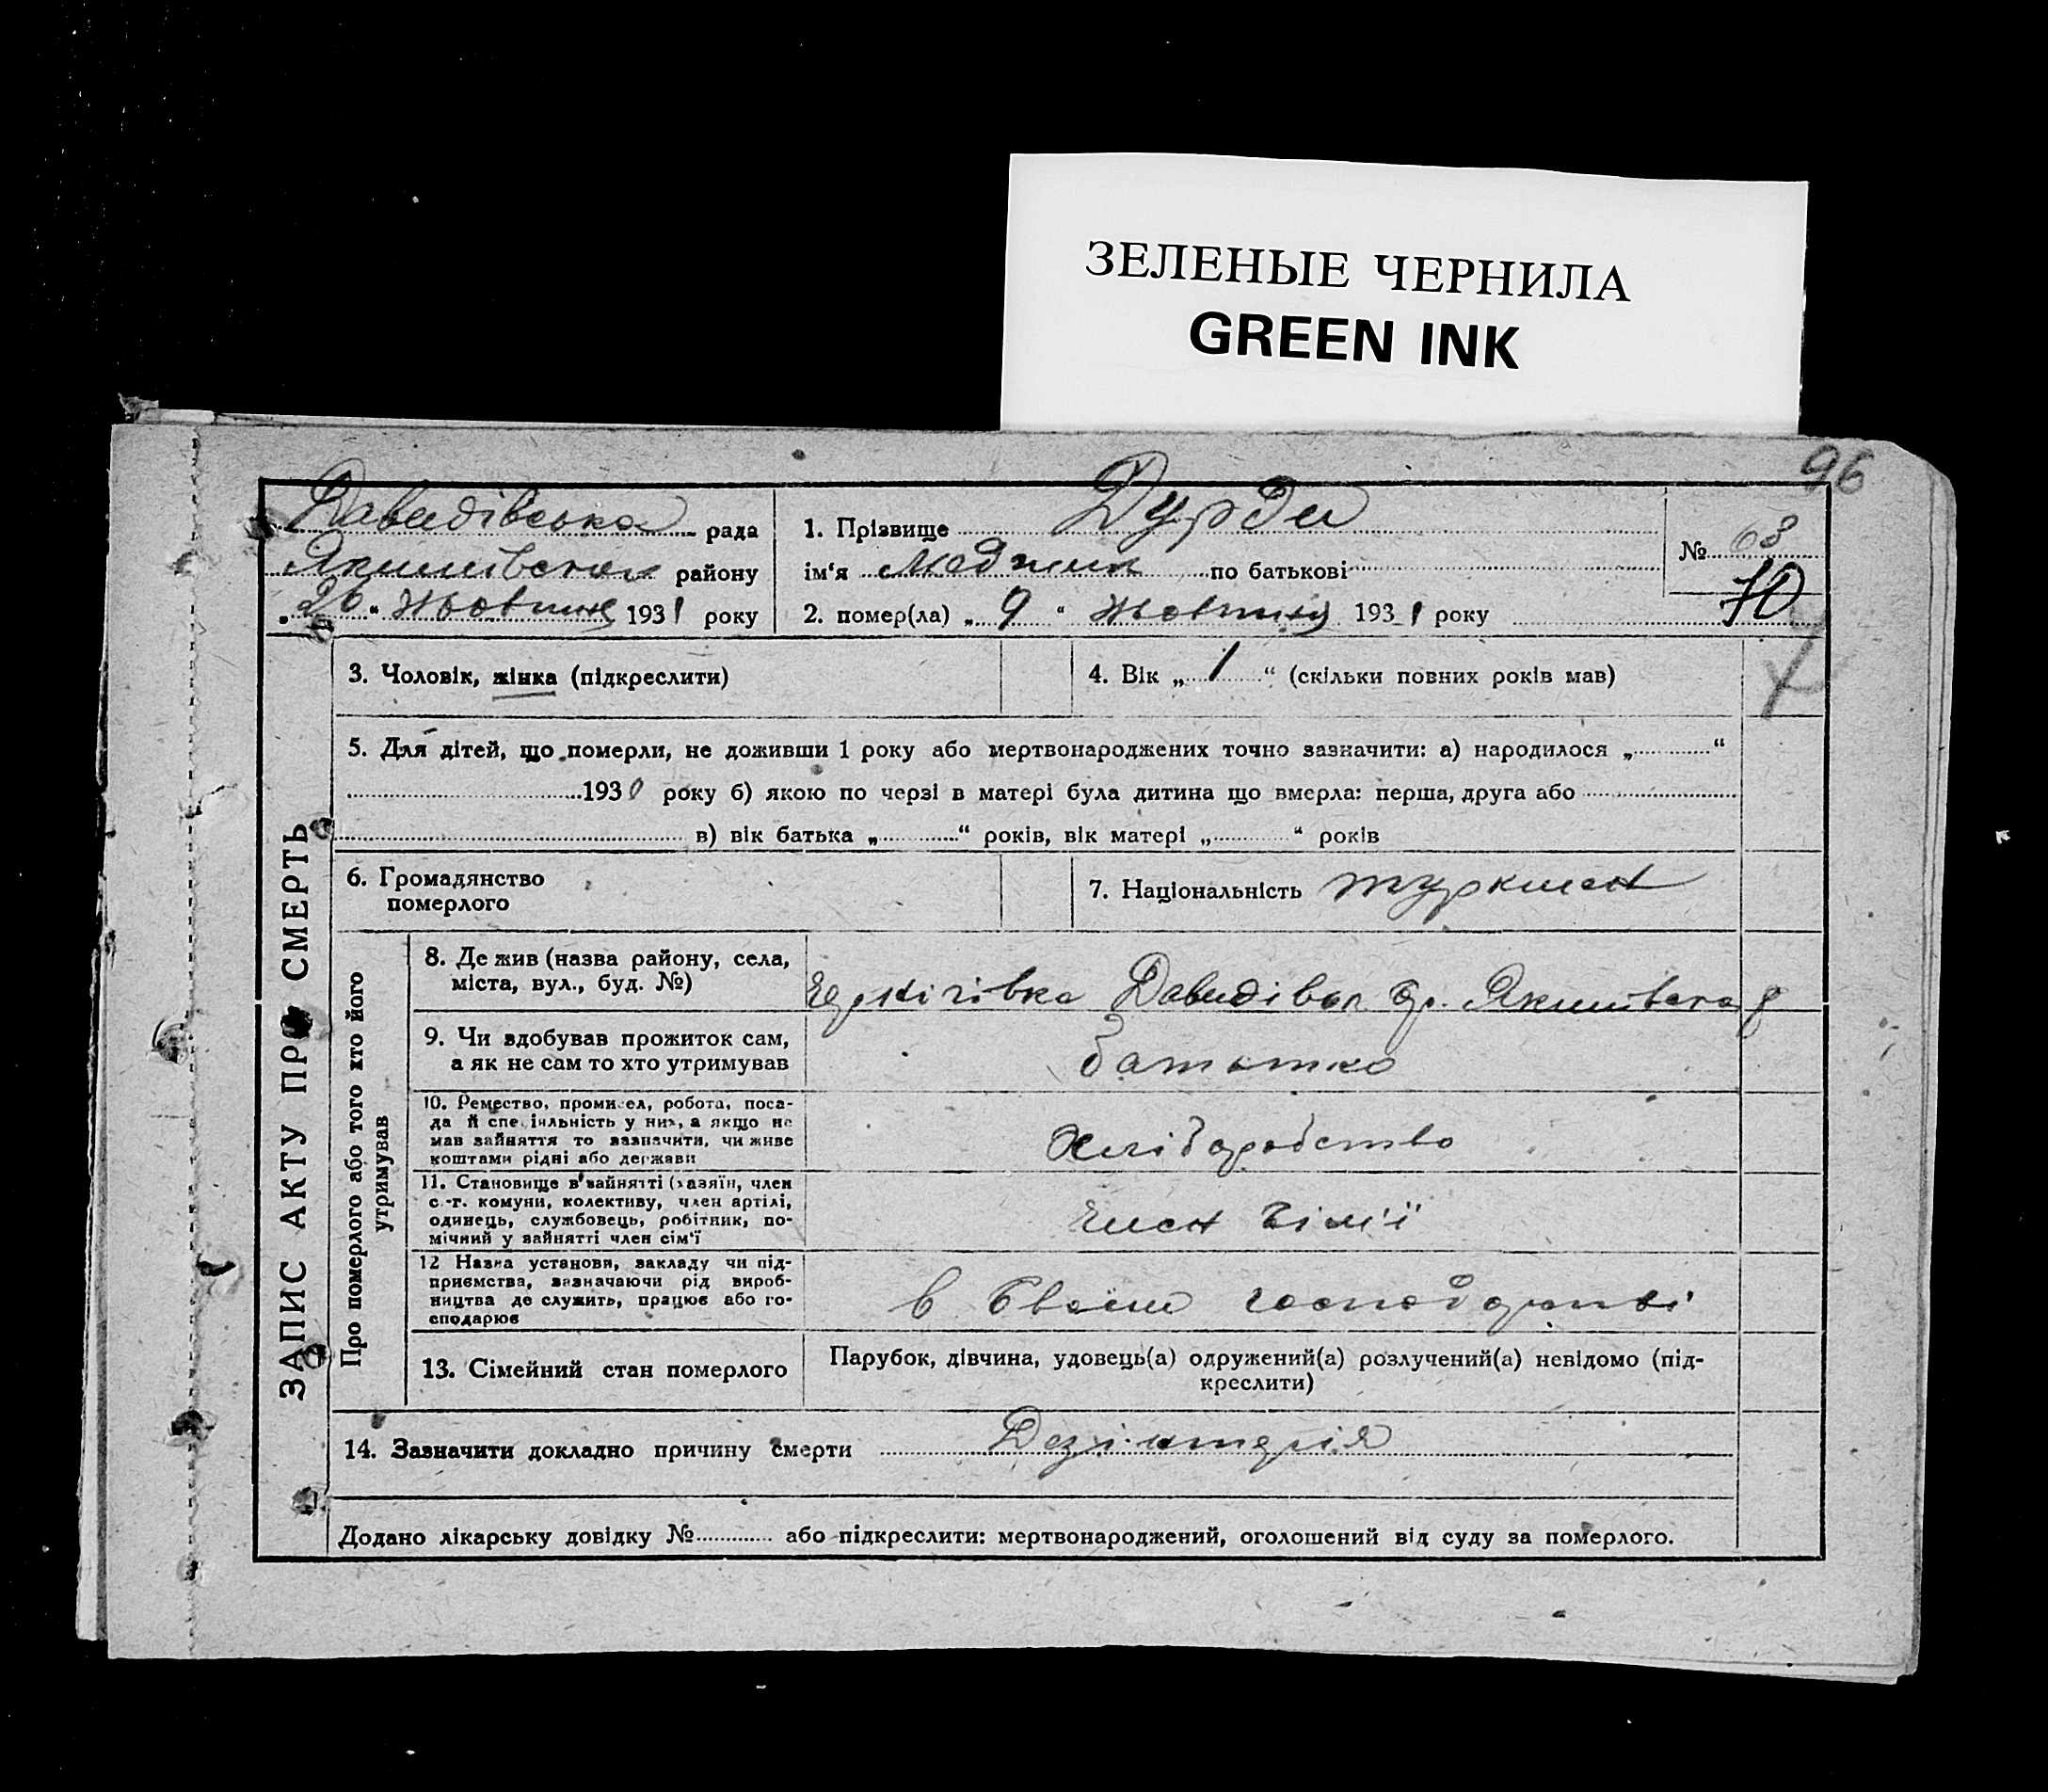 ЗЕЛЕНЫЕ ЧЕРНИЛА
GREEN INK
96
Давидівська рада
Якимівського району
„20“ Жовтня 1931 року
1. Прізвище Дурди
ім‘я по батькові
2. помер(ла) „9“ Жовтня 1931 року
№ 68
70
3. Чоловік, жінка (підкреслити)
4. Вік „1“ (скільки повних років мав)
5. Для дітей, що померли, не доживши 1 року або мертвонароджених точно зазначити: а) народилося „ “
193 року б) якою по черзі в матері була дитина що вмерла: перша, друга або
в) вік батька „ “ років, вік матері „ “ років
6. Громадянство
померлого
7. Національність туркмен
ЗАПИС АКТУ ПРО СМЕРТЬ
Про померлого або того хто його
утримував
8. Де жив (назва району, села,
міста, вул., буд. №)
Давидівск Якимівского р
9. Чи здобував прожиток сам,
а як не сам то хто утримував
батько
10. Ремество, промисел, робота, поса-
да й спеціяльність у них, а якщо не
мав зайняття то зазначити, чи живе
коштами рідні або держави
Хліборобство
11. Становище в зайнятті (хазяїн, член
с.-г. комуни, колективу, член артілі,
одинець, службовець, робітник, по-
мічний у зайнятті член сім‘ї
член сім'ї
12 Назва установи, закладу чи під-
приємства, зазначаючи рід вироб-
ництва де служить, працює або го-
сподарює
в своєму господарстві
13. Сімейний стан померлого
Парубок, дівчина, удовець(а) одружений(а) розлучений(а) невідомо (під-
креслити)
14. Зазначити докладно причину смерти Дезінтерія
Додано лікарську довідку № або підкреслити: мертвонароджений, оголошений від суду за померлого.